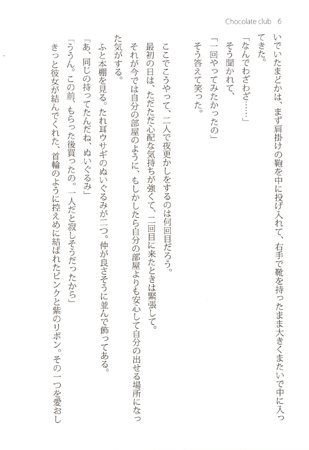 Chocolate club 6
いでいたまどかは、まず肩掛けの鞄を中に投げ入れて、右手で靴を持ったまま大きくまたいで中に入っ
てきた。
「なんでわざわざ……」
そう聞かれて、
「一回やってみたかったの」
そう答えて笑った。
ここでこうやって、二人で夜更かしをするのは何回目だろう。
最初の日は、ただただ心配な気持ちが強くて、二回目に来たときは緊張して。
それが今では自分の部屋のように、もしかしたら自分の部屋よりも安心して自分の出せる場所になっ
た気がする。
ふと本棚を見る。たれ耳ウサギのぬいぐるみが二つ。仲が良さそうに並んで飾ってある。
「あ、同じの持ってたんだね、ぬいぐるみ」
「ううん。この前、もらった後買ったの。一人だと寂しそうだったから」
きっと彼女が結んでくれた、首輪のように控えめに結ばれたピンクと紫のリボン。その一つを愛おし